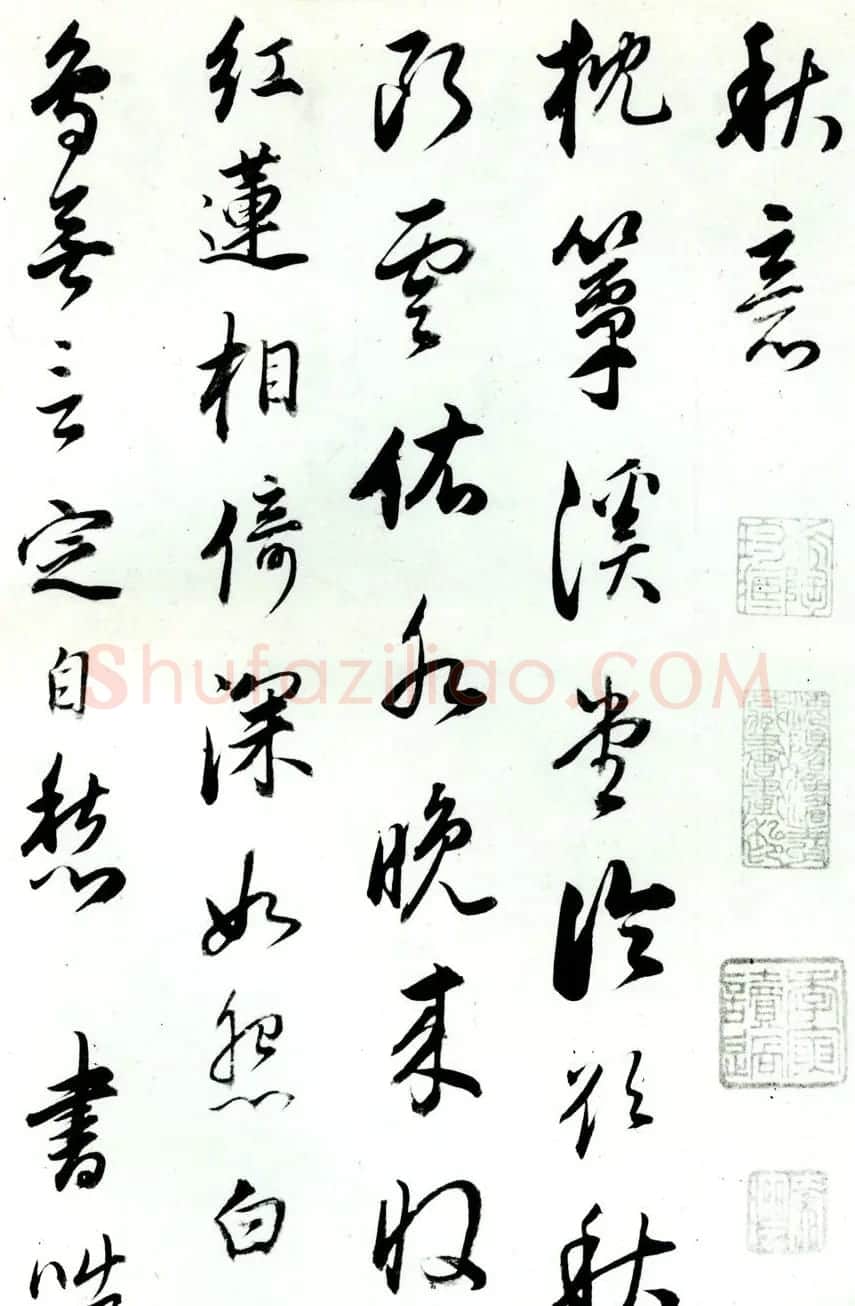 秋意
枕簟溪堂冷欲秋
断雲依水晚来收
紅蓮相倚深如怨白
鳥無言定自愁 書
Shufaziliao.COM